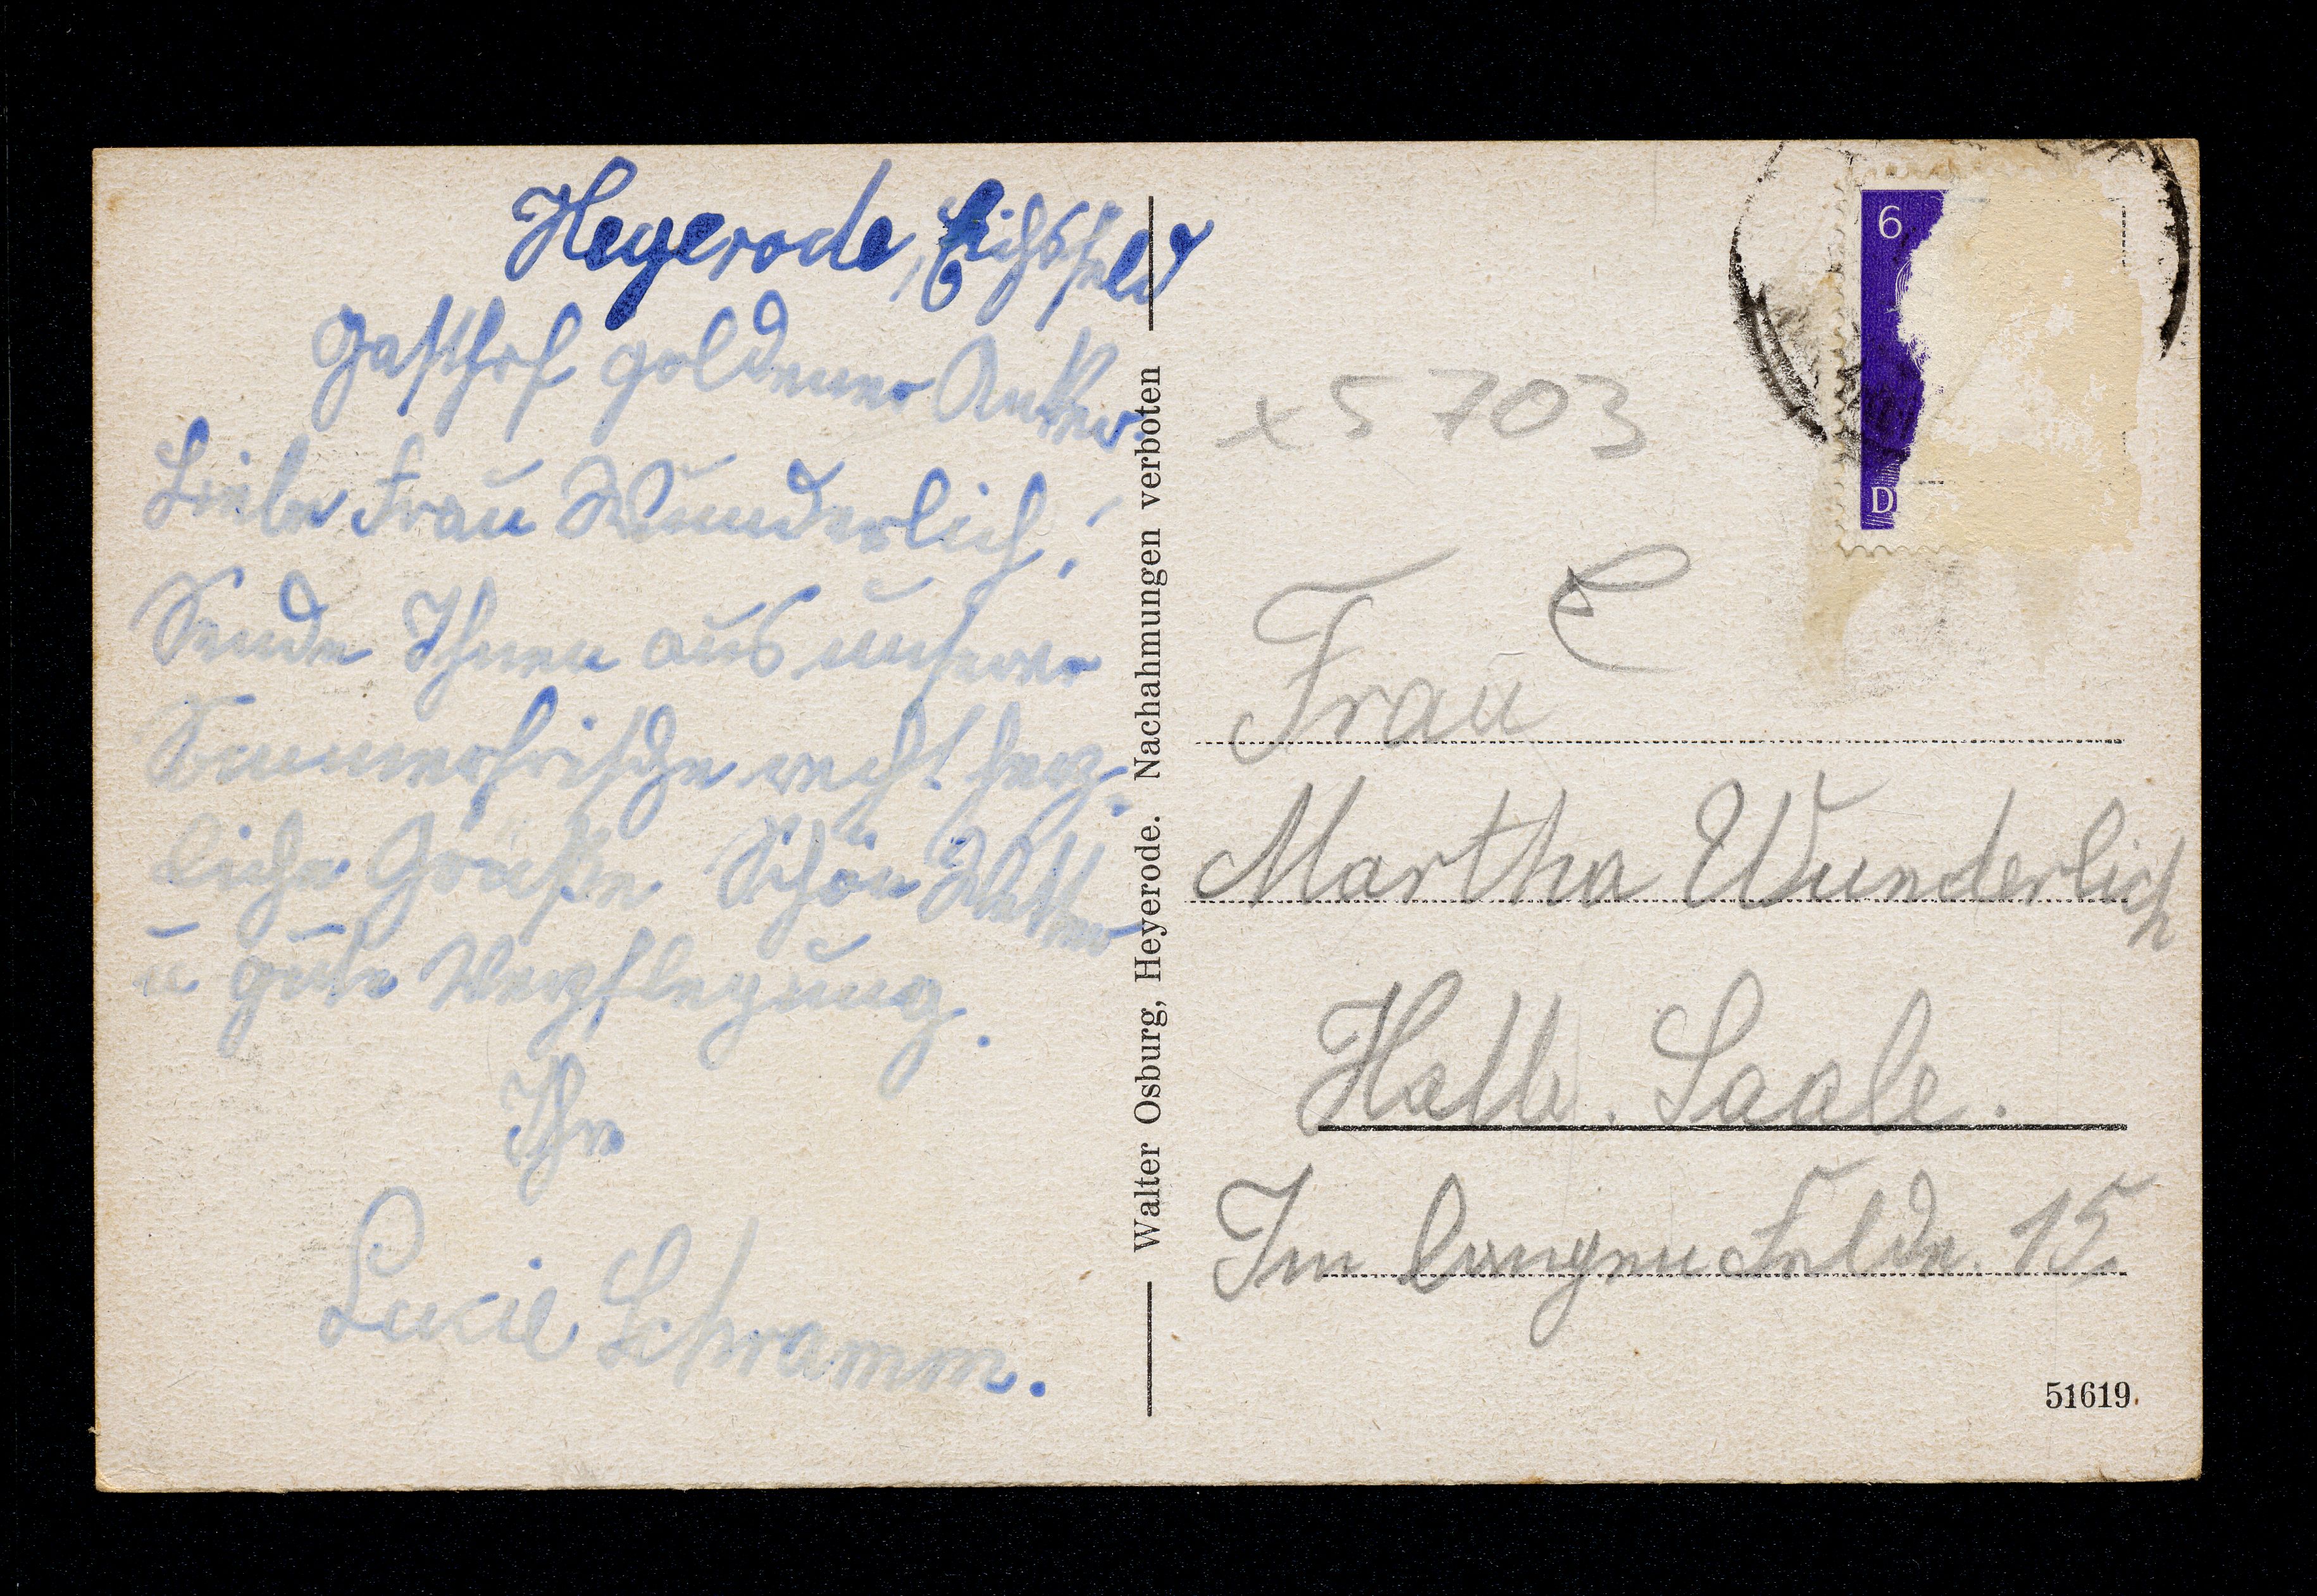 Heyerode, Eichsfeld
Gasthof goldener Anker.
Liebe Frau Wunderlich!
Sende Ihnen aus unserer
Sommerfrische recht herz-
liche Grüße. Schön Wetter
u gute Verpflegung.
Ihr
Lucie Schramm.
Walter Osburg, Heyerode. Nachahmungen verboten
6
D
x 5703
Frau
Martha Wunderlich
Halle. Saale.
Im langen Felde. 15.
51619